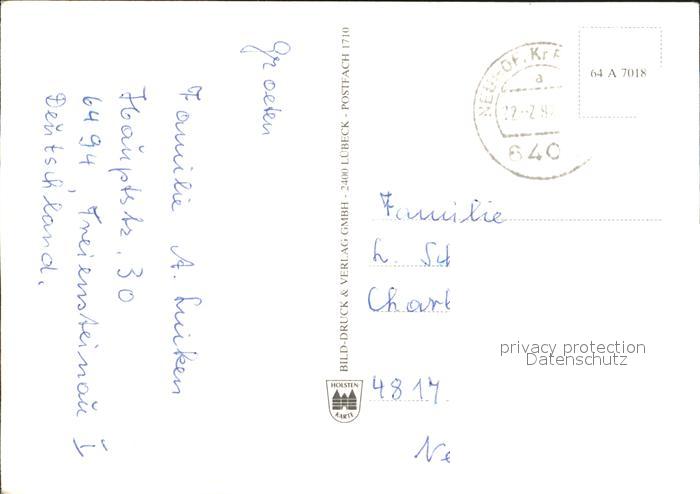 Groeten
Familie A. Luiken
Hauptstr. 30
6494 Freiensteinau I
Deutschland.
BILD-DRUCK & VERLAG GMBH - 2400 LÜBECK - POSTFACH 1710
HOLSTEN
KARTE
a
640
64 A 7018
Familie
L. Sch
Charl
privacy protection
Datenschutz
4817
Ne